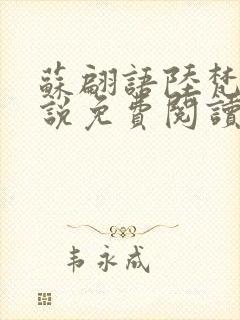 蘇翩語陸梵
說免費閱讀
韦永成